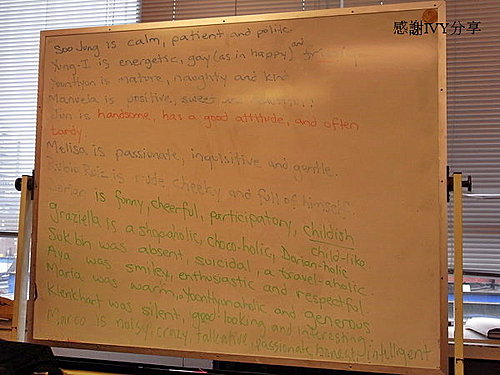 感謝IVY分享
Soo Jung is calm, patient and polite.
Yung-I is energetic, gay (as in happy) and
Yoonhyun is mature, naughty and kind
Manuela is positive, sweet
Jun is handsome, has a good attitude, and often
tardy.
Melisa is passionate, inquisitive and gentle.
Ruiz is rude, cheeky and full of himself.
Dorian is funny, cheerful, participatory, childish
child-like
graziella is a shopaholic, choco-holic, Dorian-holic
Suk bin was absent, suicidal, a travel-aholic
Aya was smiley, enthusiastic and respectful
Maria was warm, Yoonhyunaholic and generous
Klenkhart was silent, good-looking and interesting
Marco is noisy, crazy, talkative, passionate, honest, intelligent